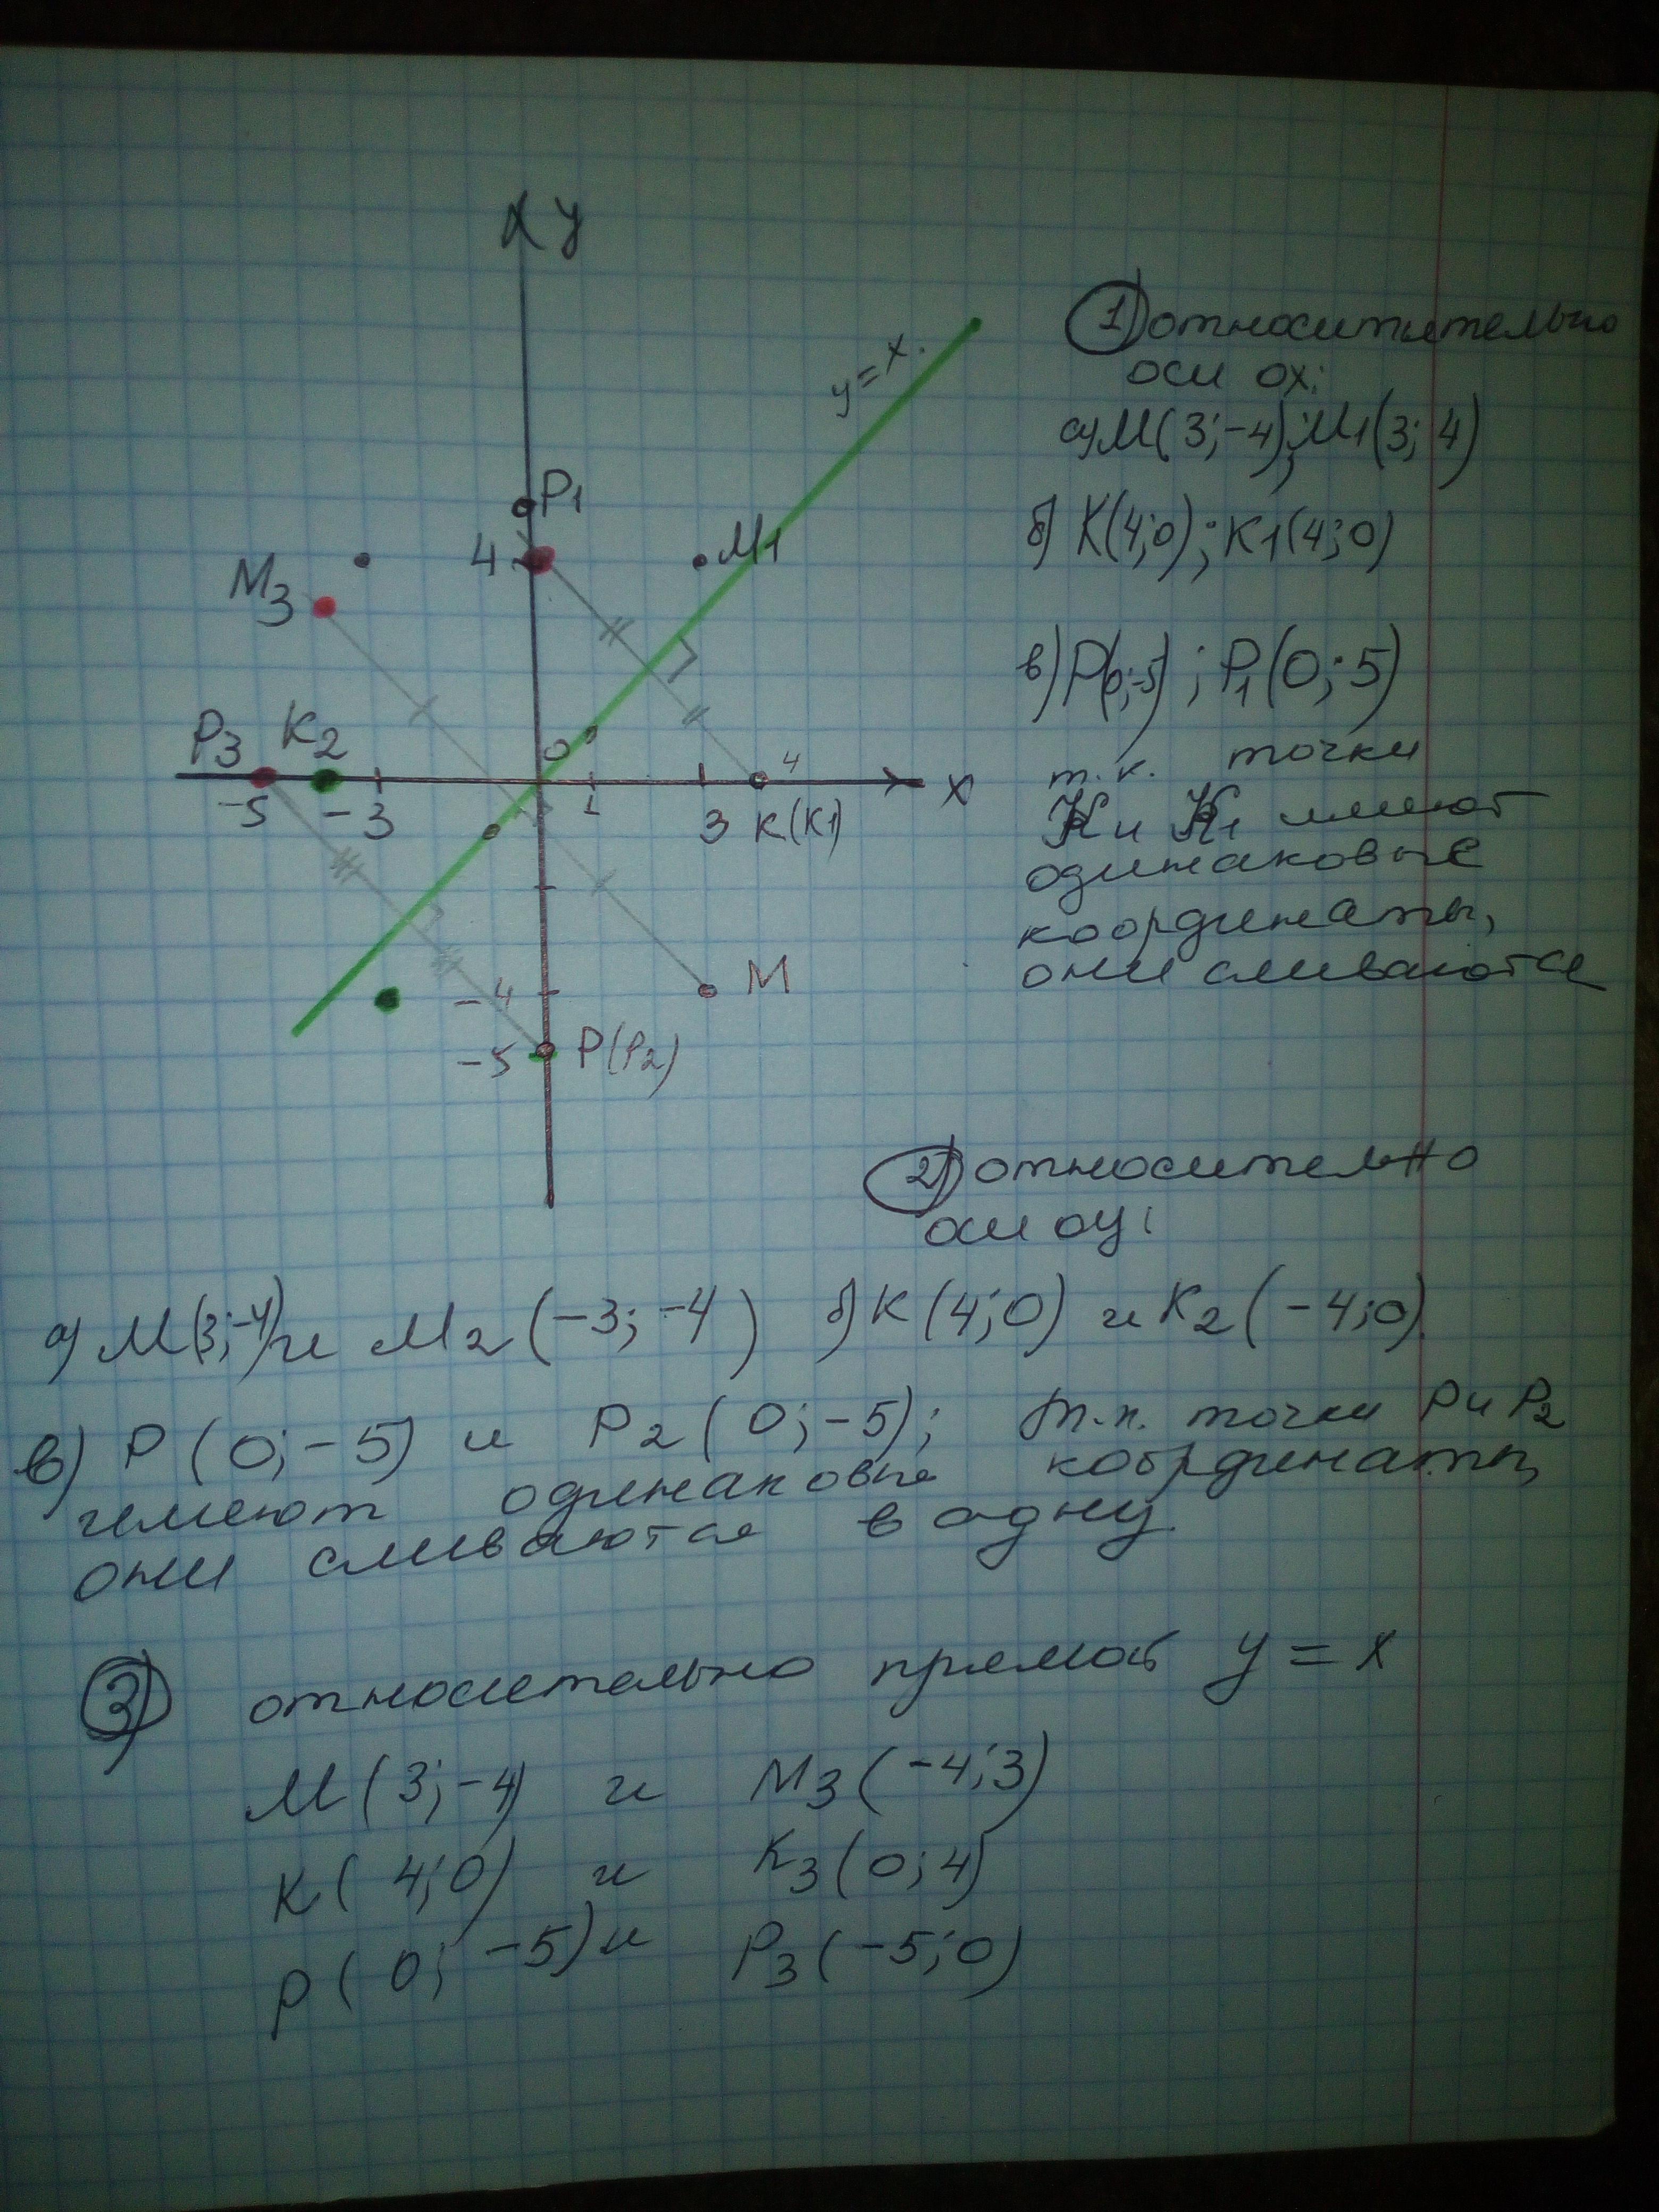 y
y=x.
P1
4
M1
M3
P3
K2
0
4
x
-5
-3
1
3
K(K1)
M
-4
-5
P(P2)
1) относительно
оси ох:
а) M(3;-4); M1(3; 4)
б) K(4;0); K1(4;0)
в) P(0;-5); P1(0; 5)
т.к. точки
K и K1 имеют
одинаковые
координаты,
они сливаются
2) относительно
оси оу:
а) M(3;-4) и M2(-3; -4) б) K(4;0) и K2(-4;0)
в) P(0;-5) и P2(0;-5); т.к. точки P и P2
имеют одинаковые координаты,
они сливаются в одну.
3) относительно прямой y = x
M(3;-4) и M3(-4;3)
K(4;0) и K3(0;4)
P(0; -5) и P3(-5;0)